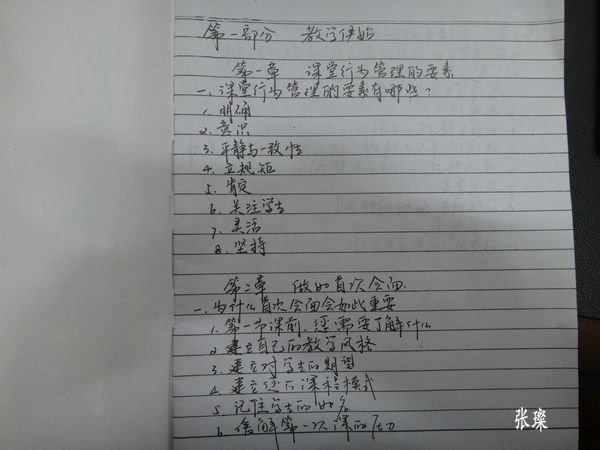 第一部分 教学伊始
第一章 课堂行为管理的要素
一、课堂行为管理的要素有哪些?
1. 明确
2. 意识
3. 平静与一致性
4. 立规矩
5. 肯定
6. 关注学生
7. 灵活
8. 坚持
第二章 做好首次会面
一、为什么首次会面会如此重要
1. 第一节课前,您需要了解什么
2. 建立自己的教学风格
3. 建立对学生的期望
4. 建立您后课程模式
5. 记住学生的姓名
6. 缓解第一次课的压力
张璨